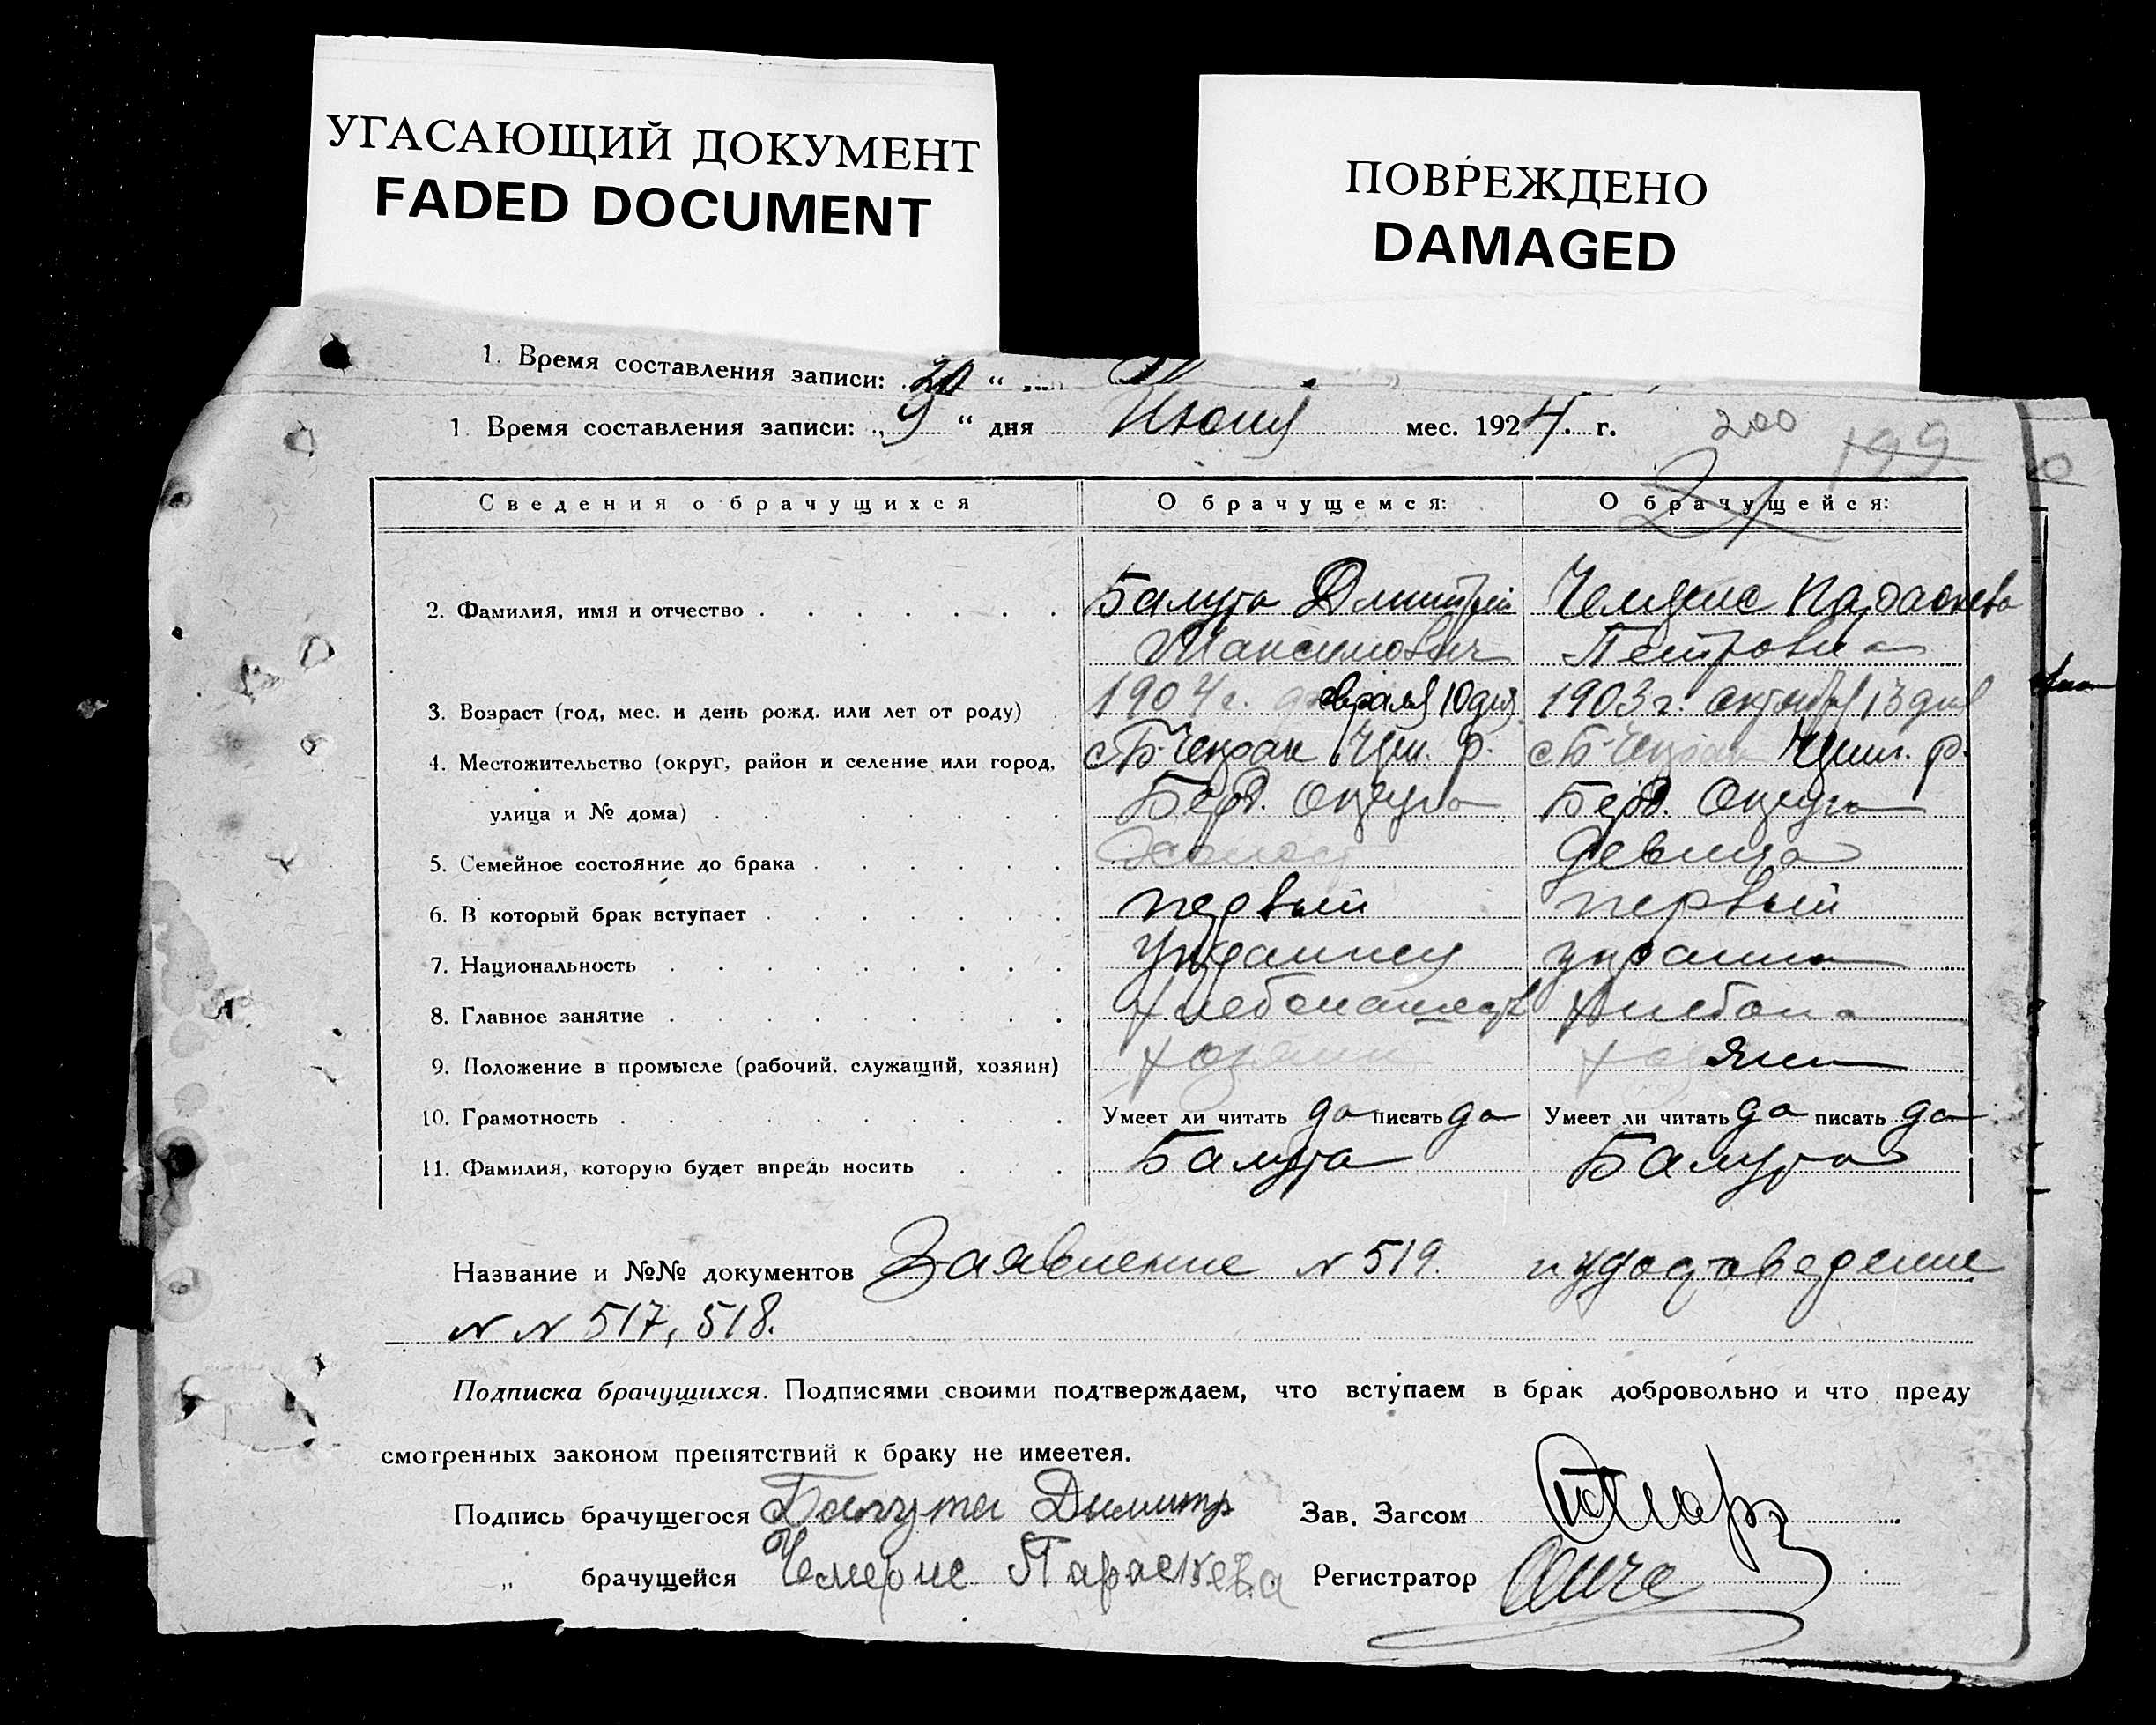 УГАСАЮЩИЙ ДОКУМЕНТ
FADED DOCUMENT
ПОВРЕЖДЕНО
DAMAGED
1. Время составления записи: 20 "
1. Время составления записи: „9 " дня Июня мес. 1924. г.
200
199
Сведения о брачущихся О брачущемся: О брачущейся:
21
2. Фамилия, имя и отчество Балута Дмитрий Чемерис Параскева
Максимович Петровна
3. Возраст (год, мес. и день рожд. или лет от роду) 1904 г. февраля 10 дня 1903 г. октября 13 дня
4. Местожительство (округ, район и селение или город, с Б-Чекрак р. с Б-Чекрак р.
улица и № дома) Берд. Округа Берд. Округа
5. Семейное состояние до брака Холост девица
6. В который брак вступает первый первый
7. Национальность Украинец украинка
8. Главное занятие Хлебопашество Хлебопа
9. Положение в промысле (рабочий, служащий, хозяин) хозяин хозяин
10. Грамотность Умеет ли читать да писать да Умеет ли читать да писать да
11. Фамилия, которую будет впредь носить Балута Балута
Название и №№ документов Заявление № 519. и удостоведение
№ № 517, 518.
Подписка брачущихся. Подписями своими подтверждаем, что вступаем в брак добровольно и что преду
смотренных законом препятствий к браку не имеетея.
Подпись брачущегося Балута Димитр Зав. Загсом
„ брачущейся Чемерис Параскева Регистратор